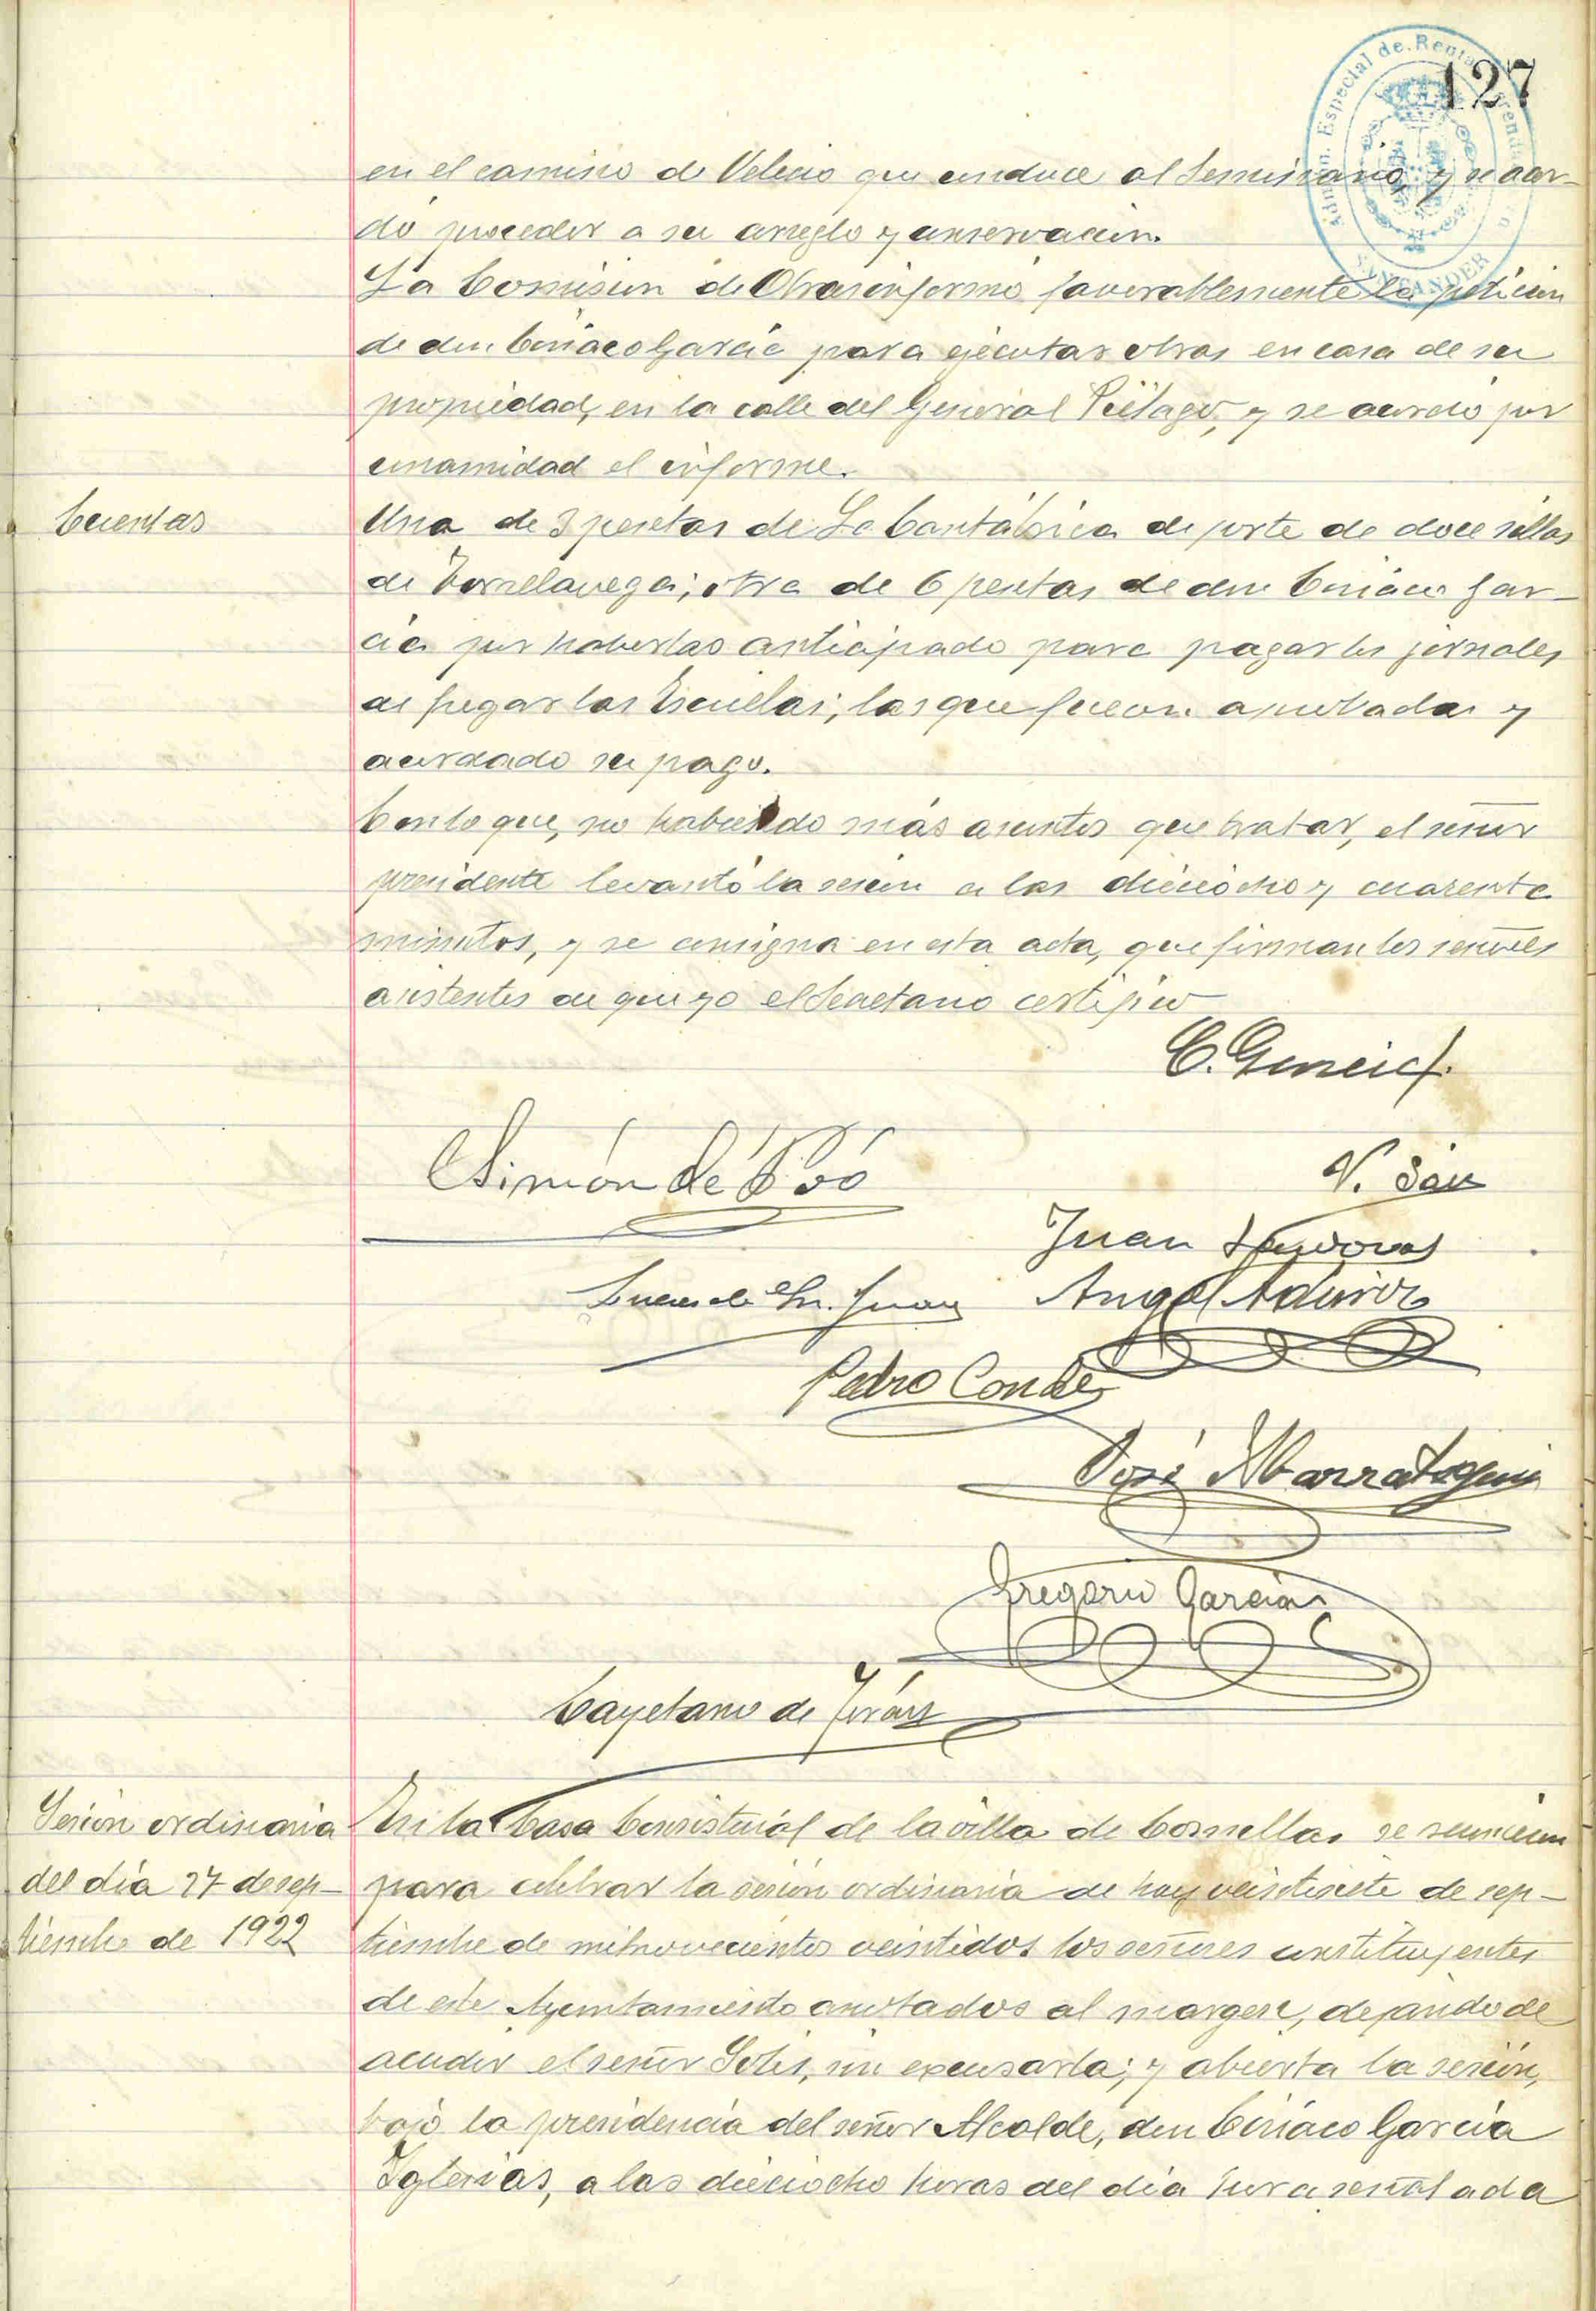 127
Admón. Especial de Rentas Arrendadas
SANTANDER
en el camino de Velecio que conduce al Seminario, y se acor-
dó proceder a su arreglo y conservación.
La Comisión de Obras informó favorablemente la petición
de don Ciriaco García para ejecutar obras en casa de su
propiedad, en la calle del General Piélago, y se acordó por
unanimidad el informe.
Cuentas
Una de 3 pesetas de La Cantábrica de porte de doce sillas
de Torrelavega; otra de 6 pesetas de don Ciriaco Gar-
cía por haberlas anticipado para pagar los jornales
de fregar las Escuelas; las que fueron aprobadas y
acordado su pago.
Con lo que, no habiendo más asuntos que tratar, el señor
presidente levantó la sesión a las dieciocho y cuarenta
minutos, y se consigna en esta acta, que firman los señores
asistentes de que yo el Secretario certifico
C. García
Simón de Poó
V. Sáiz
Juan
Lucas de Sn. Juan Angel Aduriz
Pedro Conde
José Marrategui
Gregorio García
Cayetano de Terán
Sesión ordinaria
del día 27 de sep-
tiembre de 1922
En la Casa Consistorial de la villa de Comillas se reunieron
para celebrar la sesión ordinaria de hoy veintisiete de sep-
tiembre de mil novecientos veintidos los señores constituyentes
de este Ayuntamiento anotados al margen, dejando de
acudir el señor Solis, sin excusarla; y abierta la sesión,
bajo la presidencia del señor Alcalde, don Ciriaco García
Iglesias, a las dieciocho horas del día hora señalada